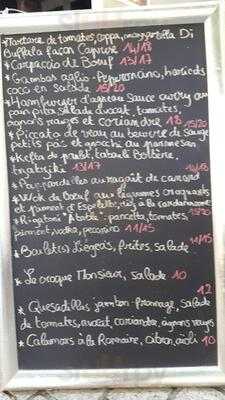 *Tartare de tomates, coppa, mozzarella Di
Buffala façon Caprese 14/18
*Carpaccio de Bœuf 13/17
*Gambas aglio-Peperoncino, haricots
coco en salade 15/20
*Hamburger d'agneau sauce curry au
pain pita, salade avocat, tomates,
oignons rouges et coriandre 18
*Piccata de veau au beurre de sauge 15/20
petits pois et gnocchi au parmesan
*Kefta de poulet, taboulé Boulgour,
tzatziki 13/17
*Pappardelles au ragoût de canard
*Wok de bœuf aux légumes croquants
et piment d'Espelette, riz à la cardamome
*Rigatoni "Noble": pancetta, tomates, 15/20
piment, vodka, pecorino 11/15
*Boulet(s) liégeois, frites, salade 11/15
*Le croque Monsieur, salade 10
12
*Quesadillas jambon fromage, salade
de tomates, avocat, coriandre, oignons rouges
*Calamars à la Romaine, citron, aïoli 10